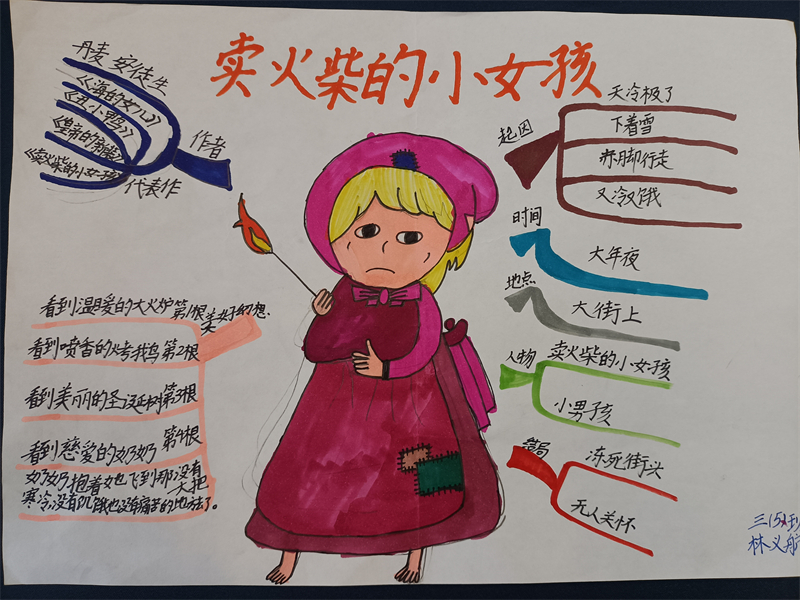 卖火柴的小女孩
丹麦 安徒生
《海的女儿》
《丑小鸭》
《皇帝的新装》
《卖火柴的小女孩》
作者
代表作
看到温暖的大火炉 第1根
美好幻想.
看到喷香的烤我鸟 第2根
看到美丽的圣诞树 第3根
看到慈爱的奶奶 第4根
奶奶抱着她飞到那没有
寒冷,没有饥饿也没有痛苦的地方了。
大把
起因
天冷极了
下着雪
赤脚行走
又冷又饿
时间
大年夜
地点
大街上
人物
卖火柴的小女孩
小男孩
结局
冻死街头
无人关怀
三(5)班
林义航